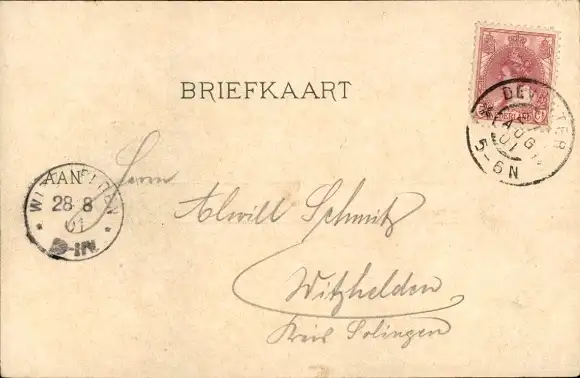 BRIEFKAART
DEVENTER
AUG
01
5-6N
AAN
28 8
01
Herrn
Alwill Schmitz
Witzhelden
Kreis Solingen